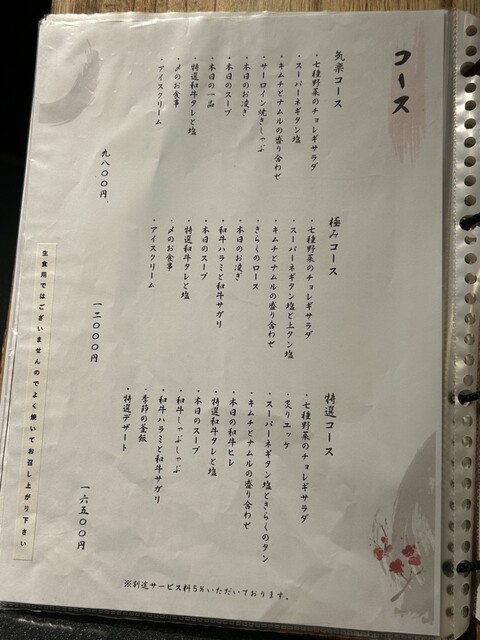 コース
気楽コース
・七種野菜のチョレギサラダ
・スーパーネギタン塩
・キムチとナムルの盛り合わせ
・サーロイン焼きしゃぶ
・本日のお凌ぎ
・本日のスープ
・本日の一品
・特選和牛タレと塩
・〆のお食事
・アイスクリーム
九八〇〇円、
極みコース
・七種野菜のチョレギサラダ
・スーパーネギタン塩と上タン塩
・キムチとナムルの盛り合わせ
・きらくのロース
・本日のお凌ぎ
・和牛ハラミと和牛サガリ
・本日のスープ
・特選和牛タレと塩
・〆のお食事
・アイスクリーム
一二〇〇〇円
特選コース
・七種野菜のチョレギサラダ
・炙りユッケ
・スーパーネギタン塩ときらくのタン
・キムチとナムルの盛り合わせ
・本日の和牛ヒレ
・特選和牛タレと塩
・本日のスープ
・和牛しゃぶしゃぶ
・和牛ハラミと和牛サガリ
・季節の釜飯
・特選デザート
一六五〇〇円
生食用ではございませんのでよく焼いてお召し上がり下さい
※別途サービス料5%いただいております。